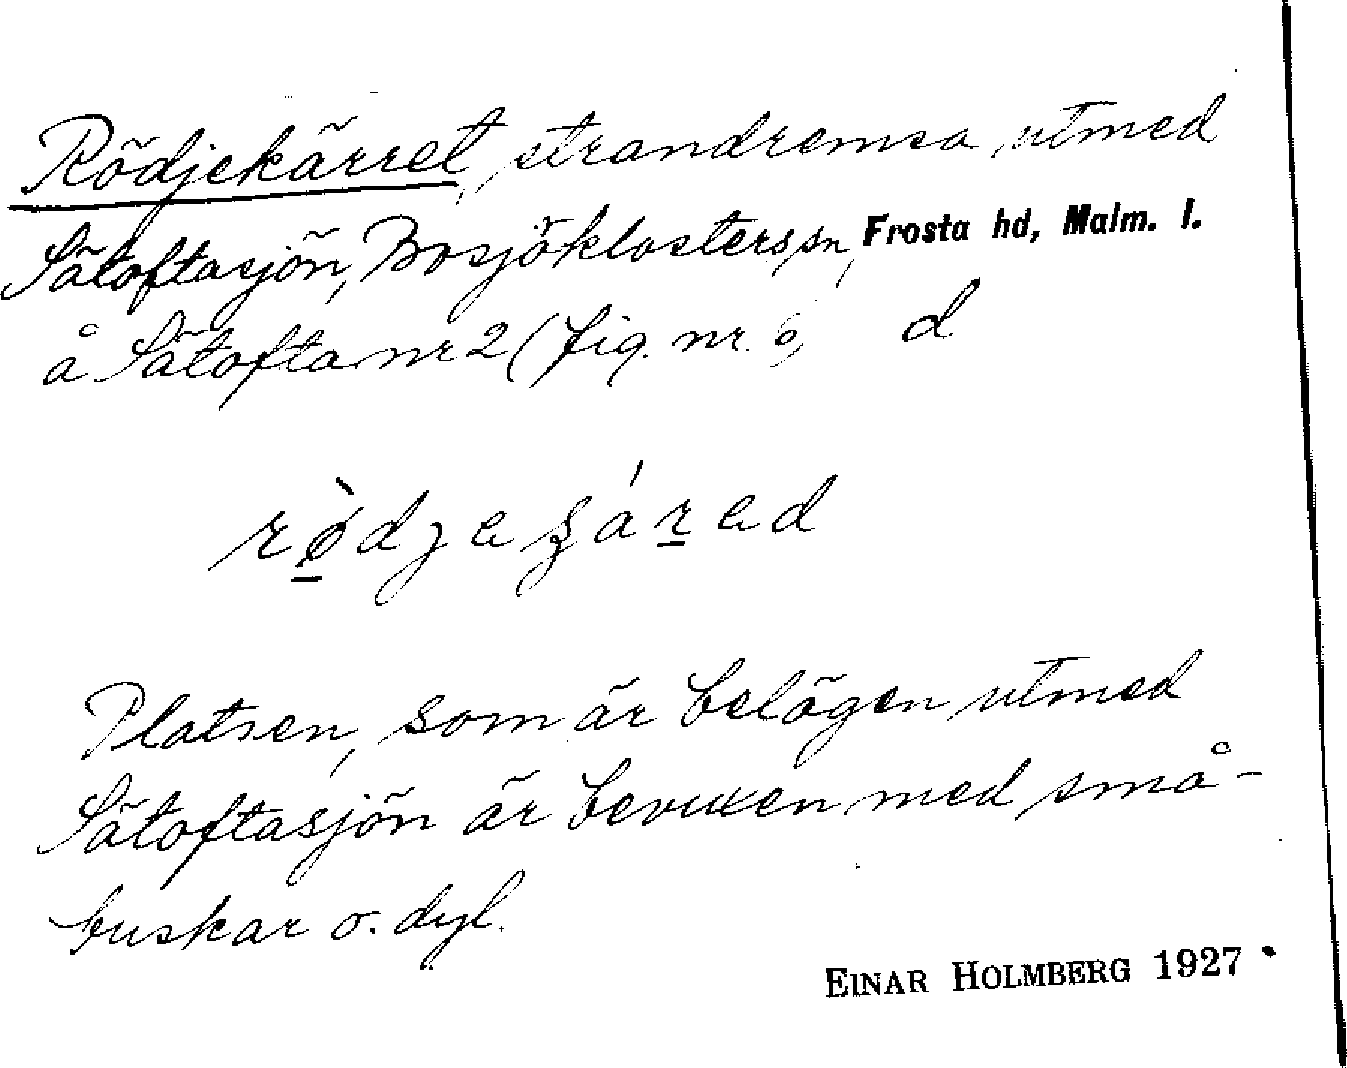 Rödjekärret, strandremsa utmed
Sätoftasjön, Bosjöklosters sn, Frosta hd, Malm. l.
å Sätofta nr 2 (fig. nr. 6, d
Platsen, som är belägen utmed
Sätoftasjön är bevuxen med små-
buskar o. dyl.
EINAR HOLMBERG 1927